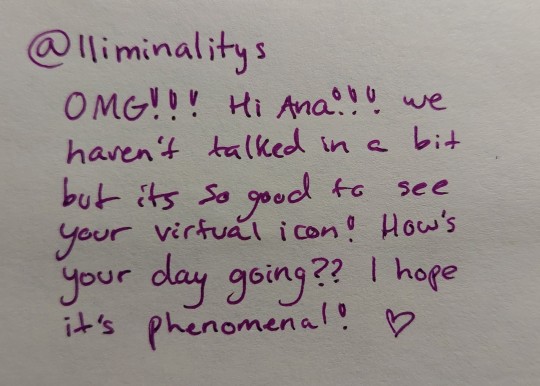 @lliminalitys
OMG!!! Hi Ana!!! we
haven't talked in a bit
but its so good to see
your virtual icon! How's
your day going?? I hope
it's phenomenal! ♡